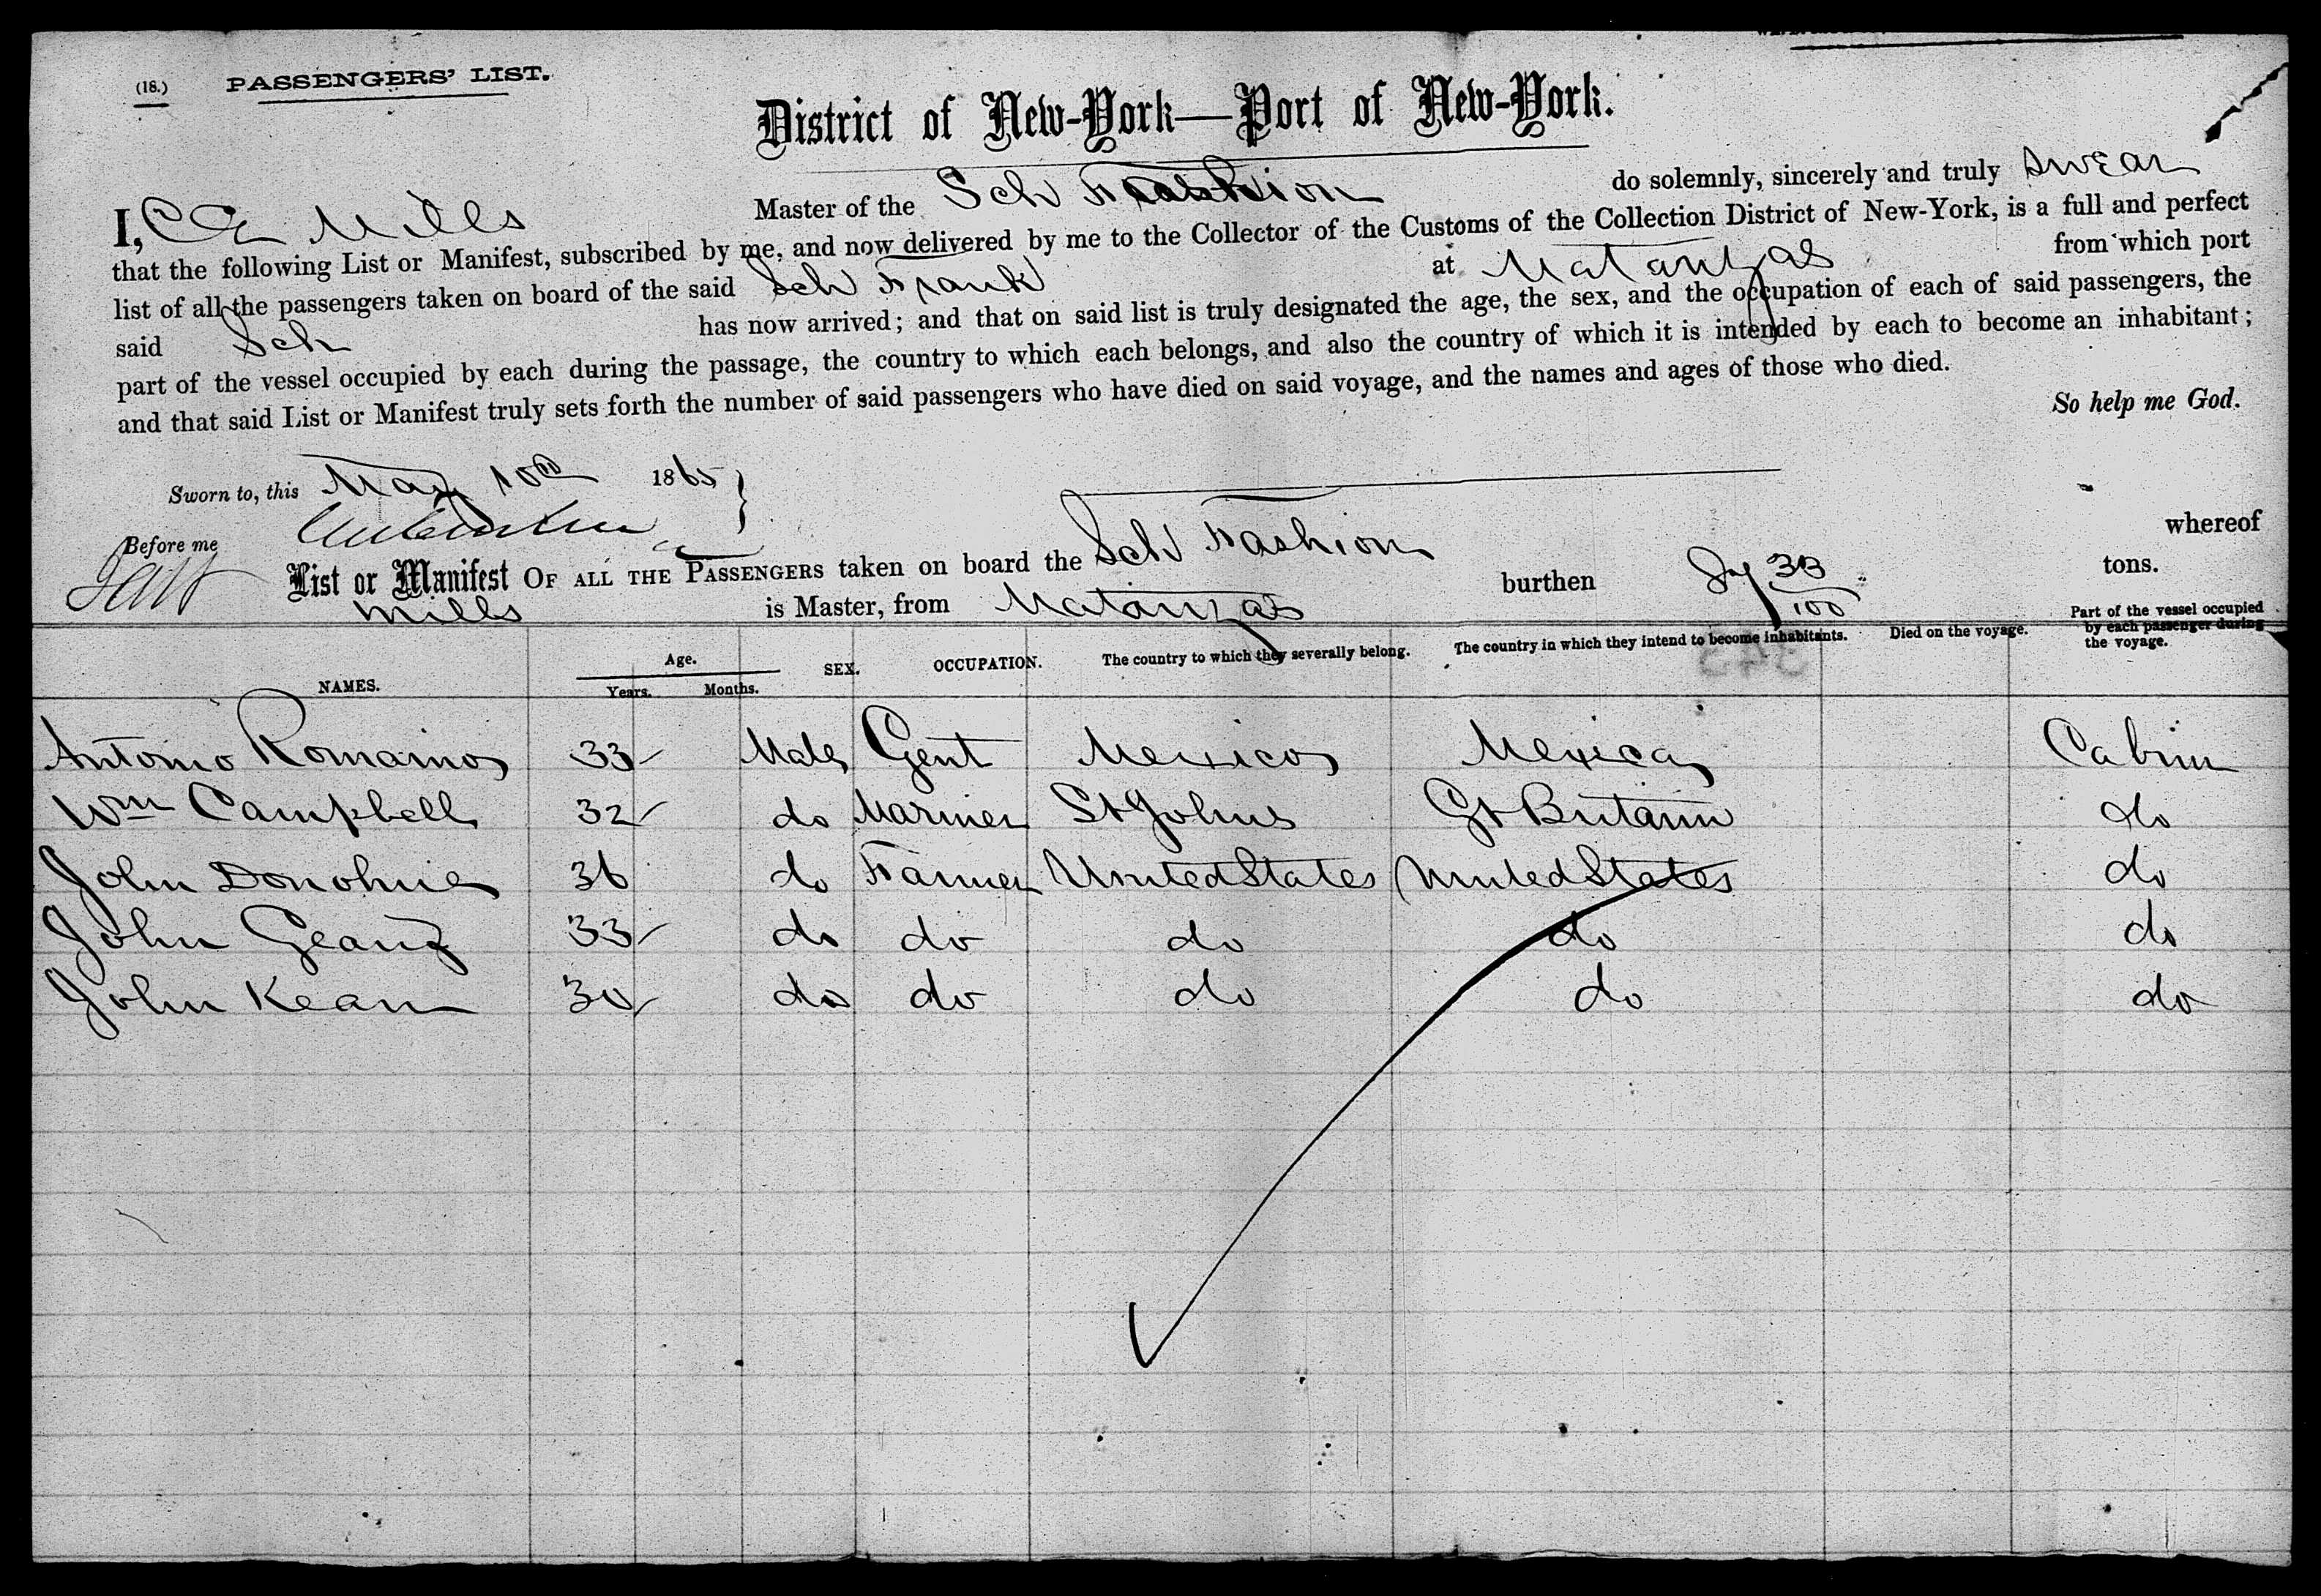 (18.) PASSENGERS' LIST.
District of New-York—Port of New-York.
I, C E Mills Master of the Sch Fashion do solemnly, sincerely and truly swear
that the following List or Manifest, subscribed by me, and now delivered by me to the Collector of the Customs of the Collection District of New-York, is a full and perfect
list of all the passengers taken on board of the said Sch Frank at Matanzas from which port
said Sch has now arrived; and that on said list is truly designated the age, the sex, and the occupation of each of said passengers, the
part of the vessel occupied by each during the passage, the country to which each belongs, and also the country of which it is intended by each to become an inhabitant;
and that said List or Manifest truly sets forth the number of said passengers who have died on said voyage, and the names and ages of those who died.
So help me God.
Sworn to, this May 10th 1865
Before me
List or Manifest OF ALL THE PASSENGERS taken on board the Sch Fashion whereof
Mills is Master, from Matanzas burthen 87 33/100 tons.
NAMES. Age. Years. Months. SEX. OCCUPATION. The country to which they severally belong. The country in which they intend to become inhabitants. Died on the voyage. Part of the vessel occupied by each passenger during the voyage.
Antonio Romainos 33 Male Gent Mexico Mexico Cabin
Wm Campbell 32 do Mariner St Johns Gt Britain do
John Donohue 36 do Farmer United States United States do
John Geary 33 do do do do do
John Kean 30 do do do do do